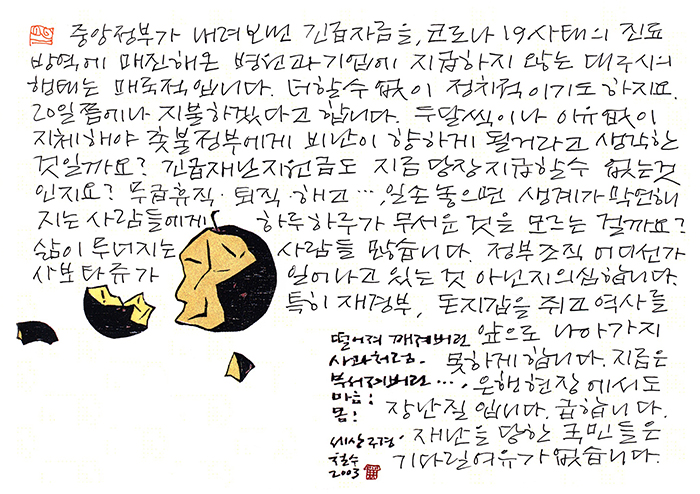 중앙정부가 내려보낸 긴급자금을, 코로나 19사태의 진료
방역에 매진해온 병원과 기업에 지급하지 않는 대구시의
행태는 패륜적입니다. 더할수 없이 정치적이기도 하지요.
20일쯤에나 지불하겠다고 합니다. 두달씩이나 이유없이
지체해야 촛불정부에게 비난이 향하게 될거라고 생각한
것일까요? 긴급재난지원금도 지금 당장 지급할수 없는것
인지요? 무급휴직·퇴직·해고 …, 일손 놓으면 생계가 막연해
지는 사람들에게 하루하루가 무서운 것을 모르는 걸까요?
삶이 무너지는 사람들 많습니다. 정부조직 어디선가
사보타류가 일어나고 있는 것 아닌지 의심합니다.
특히 재정부, 돈지갑을 쥐고 역사를
앞으로 나아가지
못하게 합니다. 지금은
은행현장에서도
장난질입니다. 급합니다.
재난을 당한 국민들은
기다릴여유가 없습니다.
떨어져 깨져버린
사과처럼.
부서져버린 …,
마음!
몸!
세상구경.
철수
2003